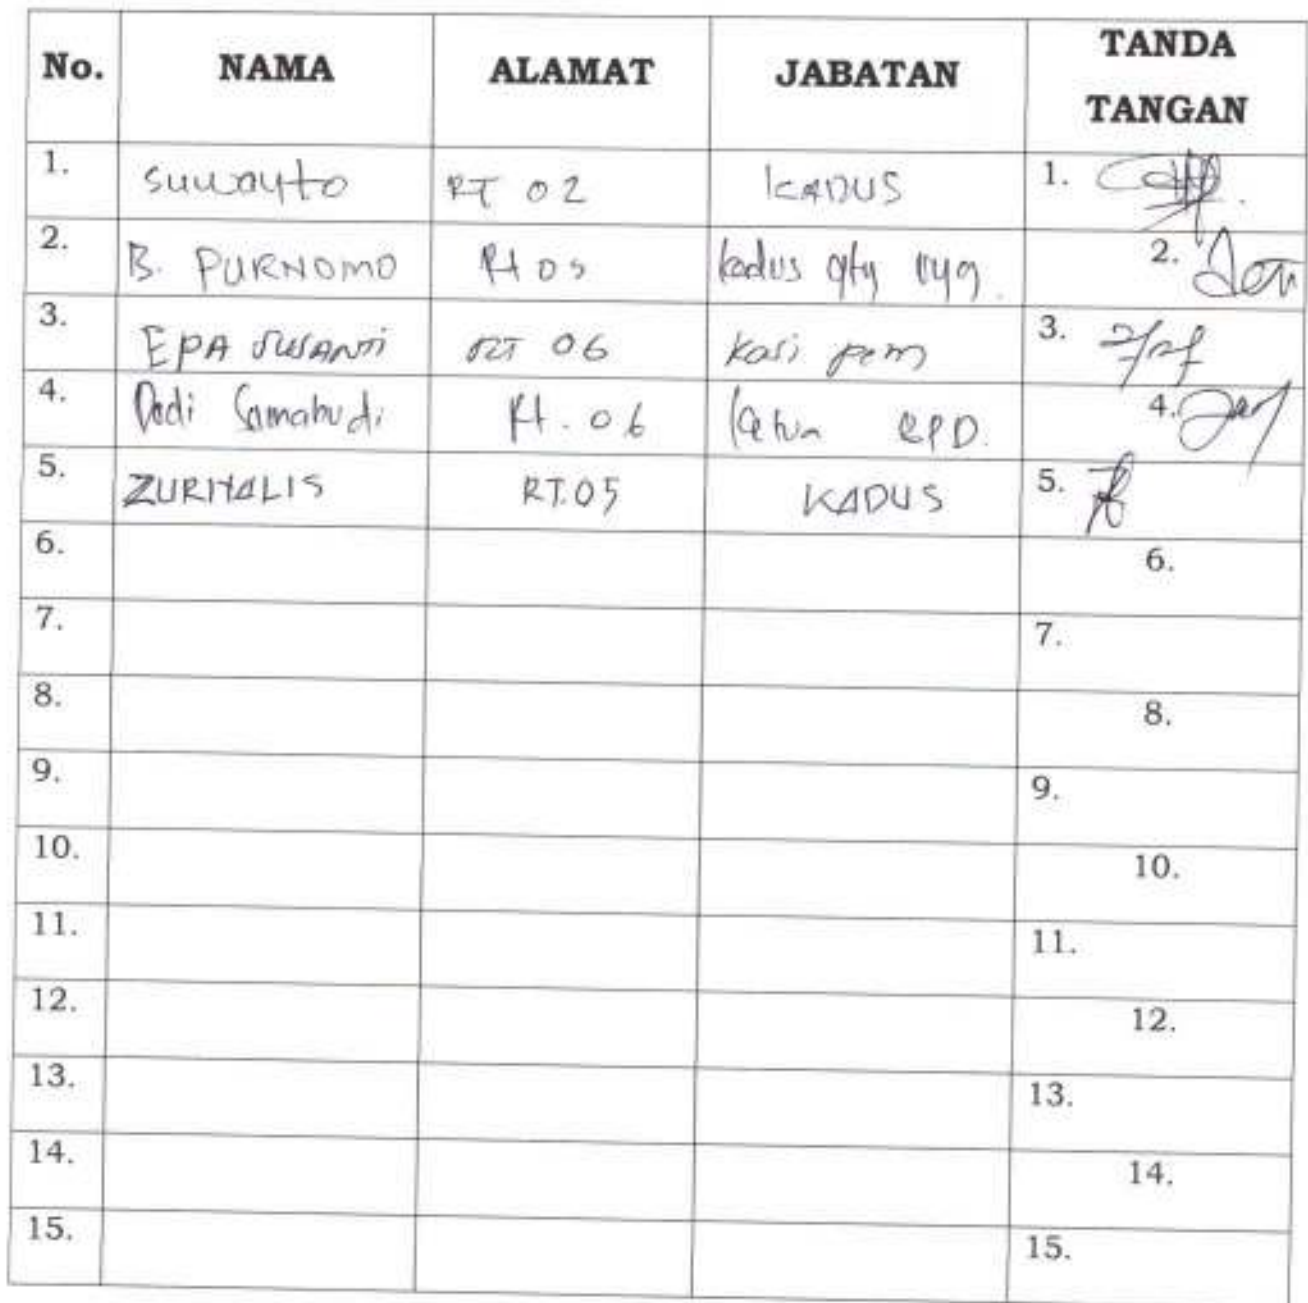 No. NAMA ALAMAT JABATAN TANDA TANGAN
1. Suwayto RT 02 KADUS 1.
2. B. PURNOMO Rt 05 kadus 2.
3. EPA SUSANTI RT 06 Kasi pem 3.
4. Dedi Rt. 06 Ketua BPD. 4.
5. ZURIYALIS RT.05 KADUS 5.
6. 6.
7. 7.
8. 8.
9. 9.
10. 10.
11. 11.
12. 12.
13. 13.
14. 14.
15. 15.